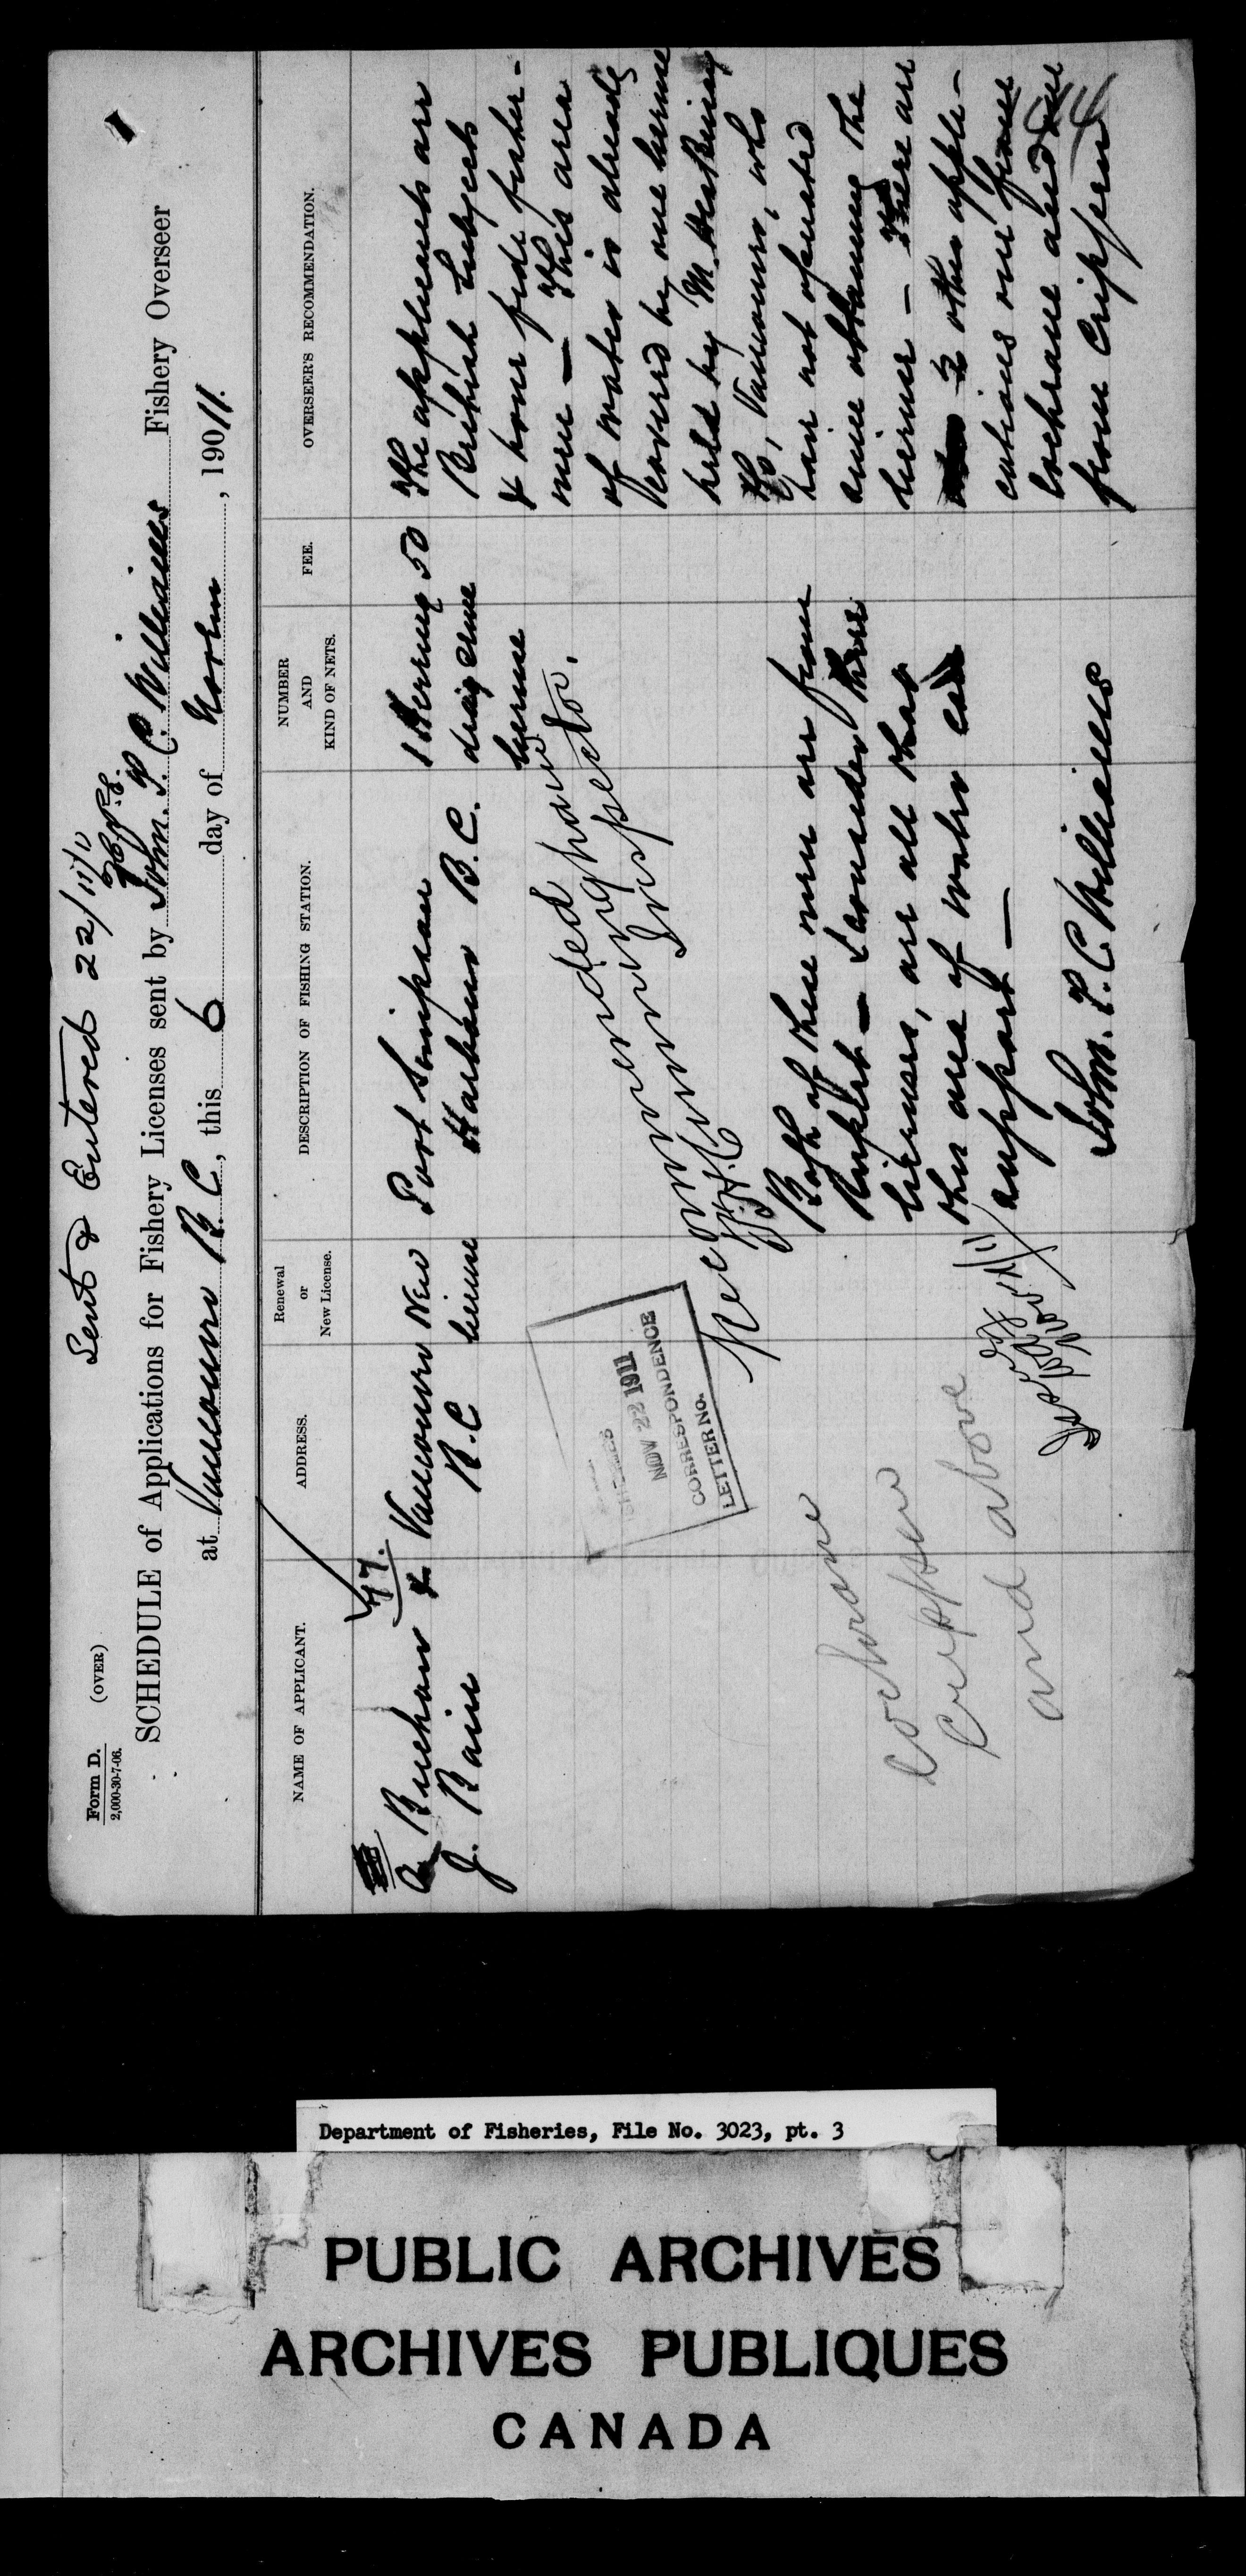 Sent & Entered 22/11/11
Form D. (OVER)
2,000-30-7-06.
SCHEDULE of Applications for Fishery Licenses sent by John. T. C. Williams Fishery Overseer
at Vancouver B.C, this 6 day of Novbr, 19011.
NAME OF APPLICANT.
ADDRESS.
Renewal
or
New License.
DESCRIPTION OF FISHING STATION.
NUMBER
AND
KIND OF NETS.
FEE.
OVERSEER'S RECOMMENDATION.
47.
A Buchan &
J. Bain
Vancouver
B.C
New
license
Port Simpson
Harbour B.C.
1 Herring
drag seine
license
50
The applicants are
British Subjects
& bona fide fisher-
men — This area
of water is already
covered by one license
held by M.
Co, Vancouver, who
have not operated
since obtaining the
license — There are
2 other appli-
cations one from
Cochrane and one
from Crippen
44
Recommended
Inspector.
NOV 22 1911
CORRESPONDENCE
LETTER No.
Both of these men are from
Rupert — I consider three
licenses, are all that
this area of water can
support —
John. T. C. Williams
Cochrane
Crippen
and above
Department of Fisheries, File No. 3023, pt. 3
PUBLIC ARCHIVES
ARCHIVES PUBLIQUES
CANADA